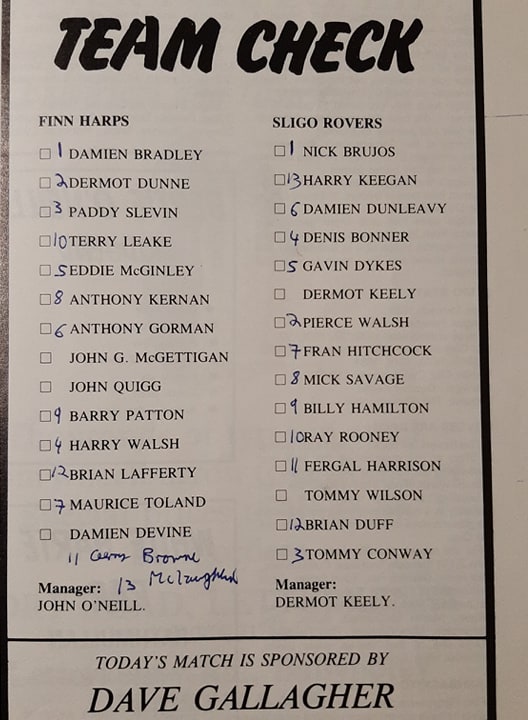 TEAM CHECK
FINN HARPS
☐ 1 DAMIEN BRADLEY
☐ 2 DERMOT DUNNE
☐ 3 PADDY SLEVIN
☐ 10 TERRY LEAKE
☐ 5 EDDIE McGINLEY
☐ 8 ANTHONY KERNAN
☐ 6 ANTHONY GORMAN
☐ JOHN G. McGETTIGAN
☐ JOHN QUIGG
☐ 9 BARRY PATTON
☐ 4 HARRY WALSH
☐ 12 BRIAN LAFFERTY
☐ 7 MAURICE TOLAND
☐ DAMIEN DEVINE
11 Browne
13 McLaughlin
Manager:
JOHN O'NEILL.
SLIGO ROVERS
☐ 1 NICK BRUJOS
☐ 13 HARRY KEEGAN
☐ 6 DAMIEN DUNLEAVY
☐ 4 DENIS BONNER
☐ 5 GAVIN DYKES
☐ DERMOT KEELY
☐ 2 PIERCE WALSH
☐ 7 FRAN HITCHCOCK
☐ 8 MICK SAVAGE
☐ 9 BILLY HAMILTON
☐ 10 RAY ROONEY
☐ 11 FERGAL HARRISON
☐ TOMMY WILSON
☐ 12 BRIAN DUFF
☐ 3 TOMMY CONWAY
Manager:
DERMOT KEELY.
TODAY'S MATCH IS SPONSORED BY
DAVE GALLAGHER